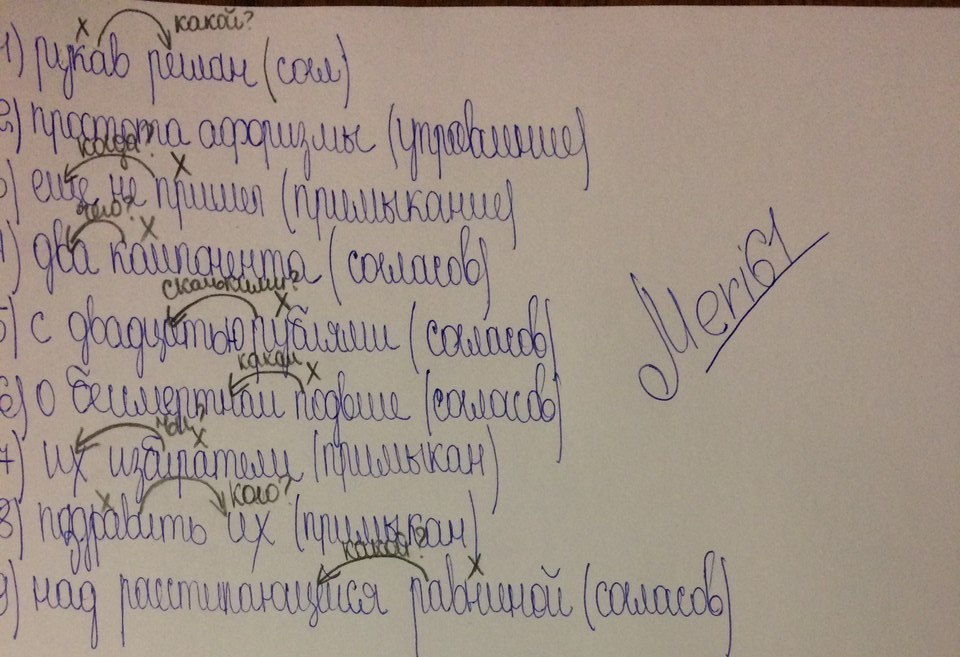 х какой?
1) рукав реглан (согл)
2) простота афоризмы (управление)
когда? х
3) еще не пришел (примыкание)
чего? х
4) два компонента (согласов)
сколькими? х
5) с двадцатью рублями (согласов)
каком х
6) о бессмертном подвиге (согласов)
чьи? х
7) их избиратели (примыкан)
х кого?
8) поздравить их (примыкан)
какой? х
9) над расстилающейся равниной (согласов)
Meri61